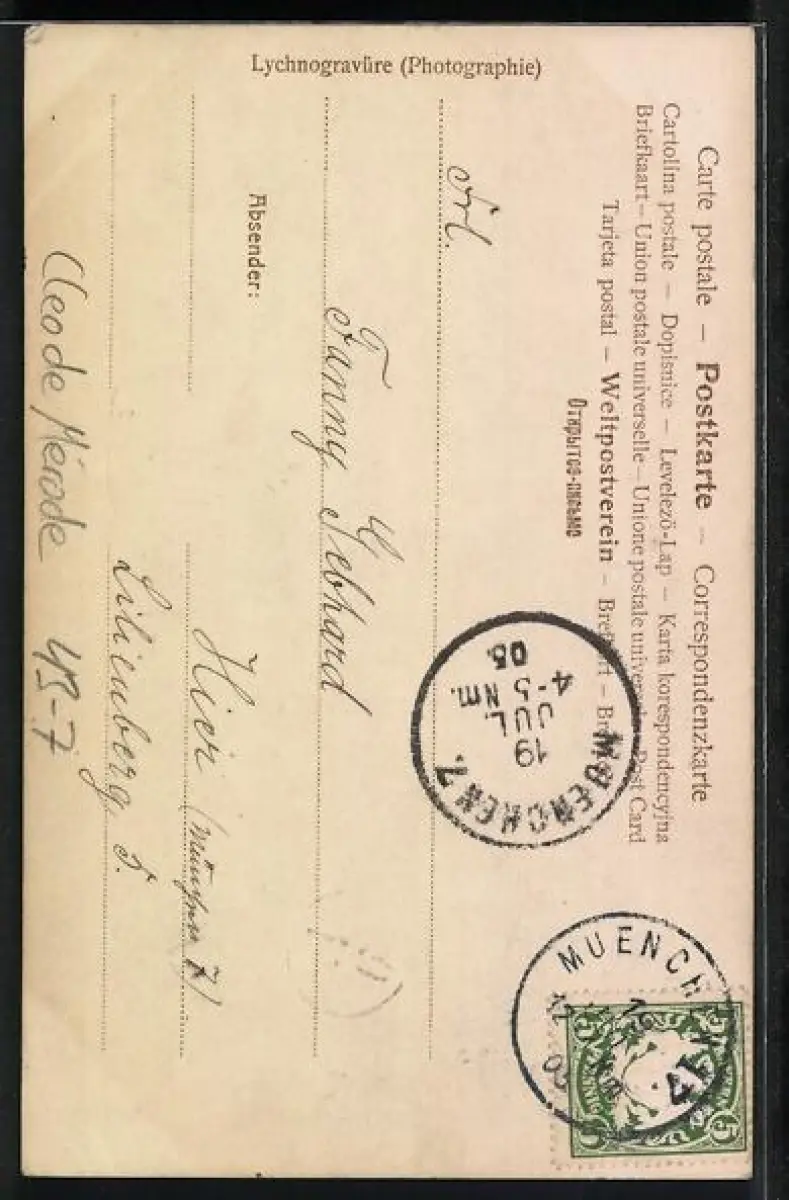 Carte postale – Postkarte – Correspondenzkarte
Cartolina postale – Dopisnice – Levelező-Lap – Karta korespondencyjna
Briefkaart – Union postale universelle – Unione postale universale Post Card
Tarjeta postal – Weltpostverein –
Открытое-письмо
Lychnogravüre (Photographie)
Frl.
Fanny Gebhard
Absender:
Hier (München 7)
Lilienberg 5.
Cleo de Mérode 43-7
MUENCHEN 7.
19
JUL.
4-5 NM.
05.
MUENCH
5 5
5 5